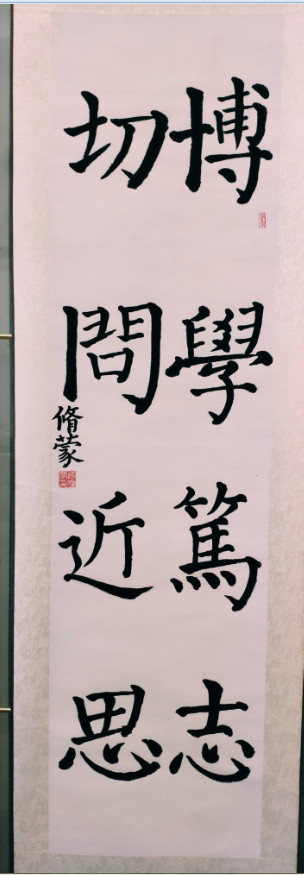 博學篤志
切問近思
脩蒙